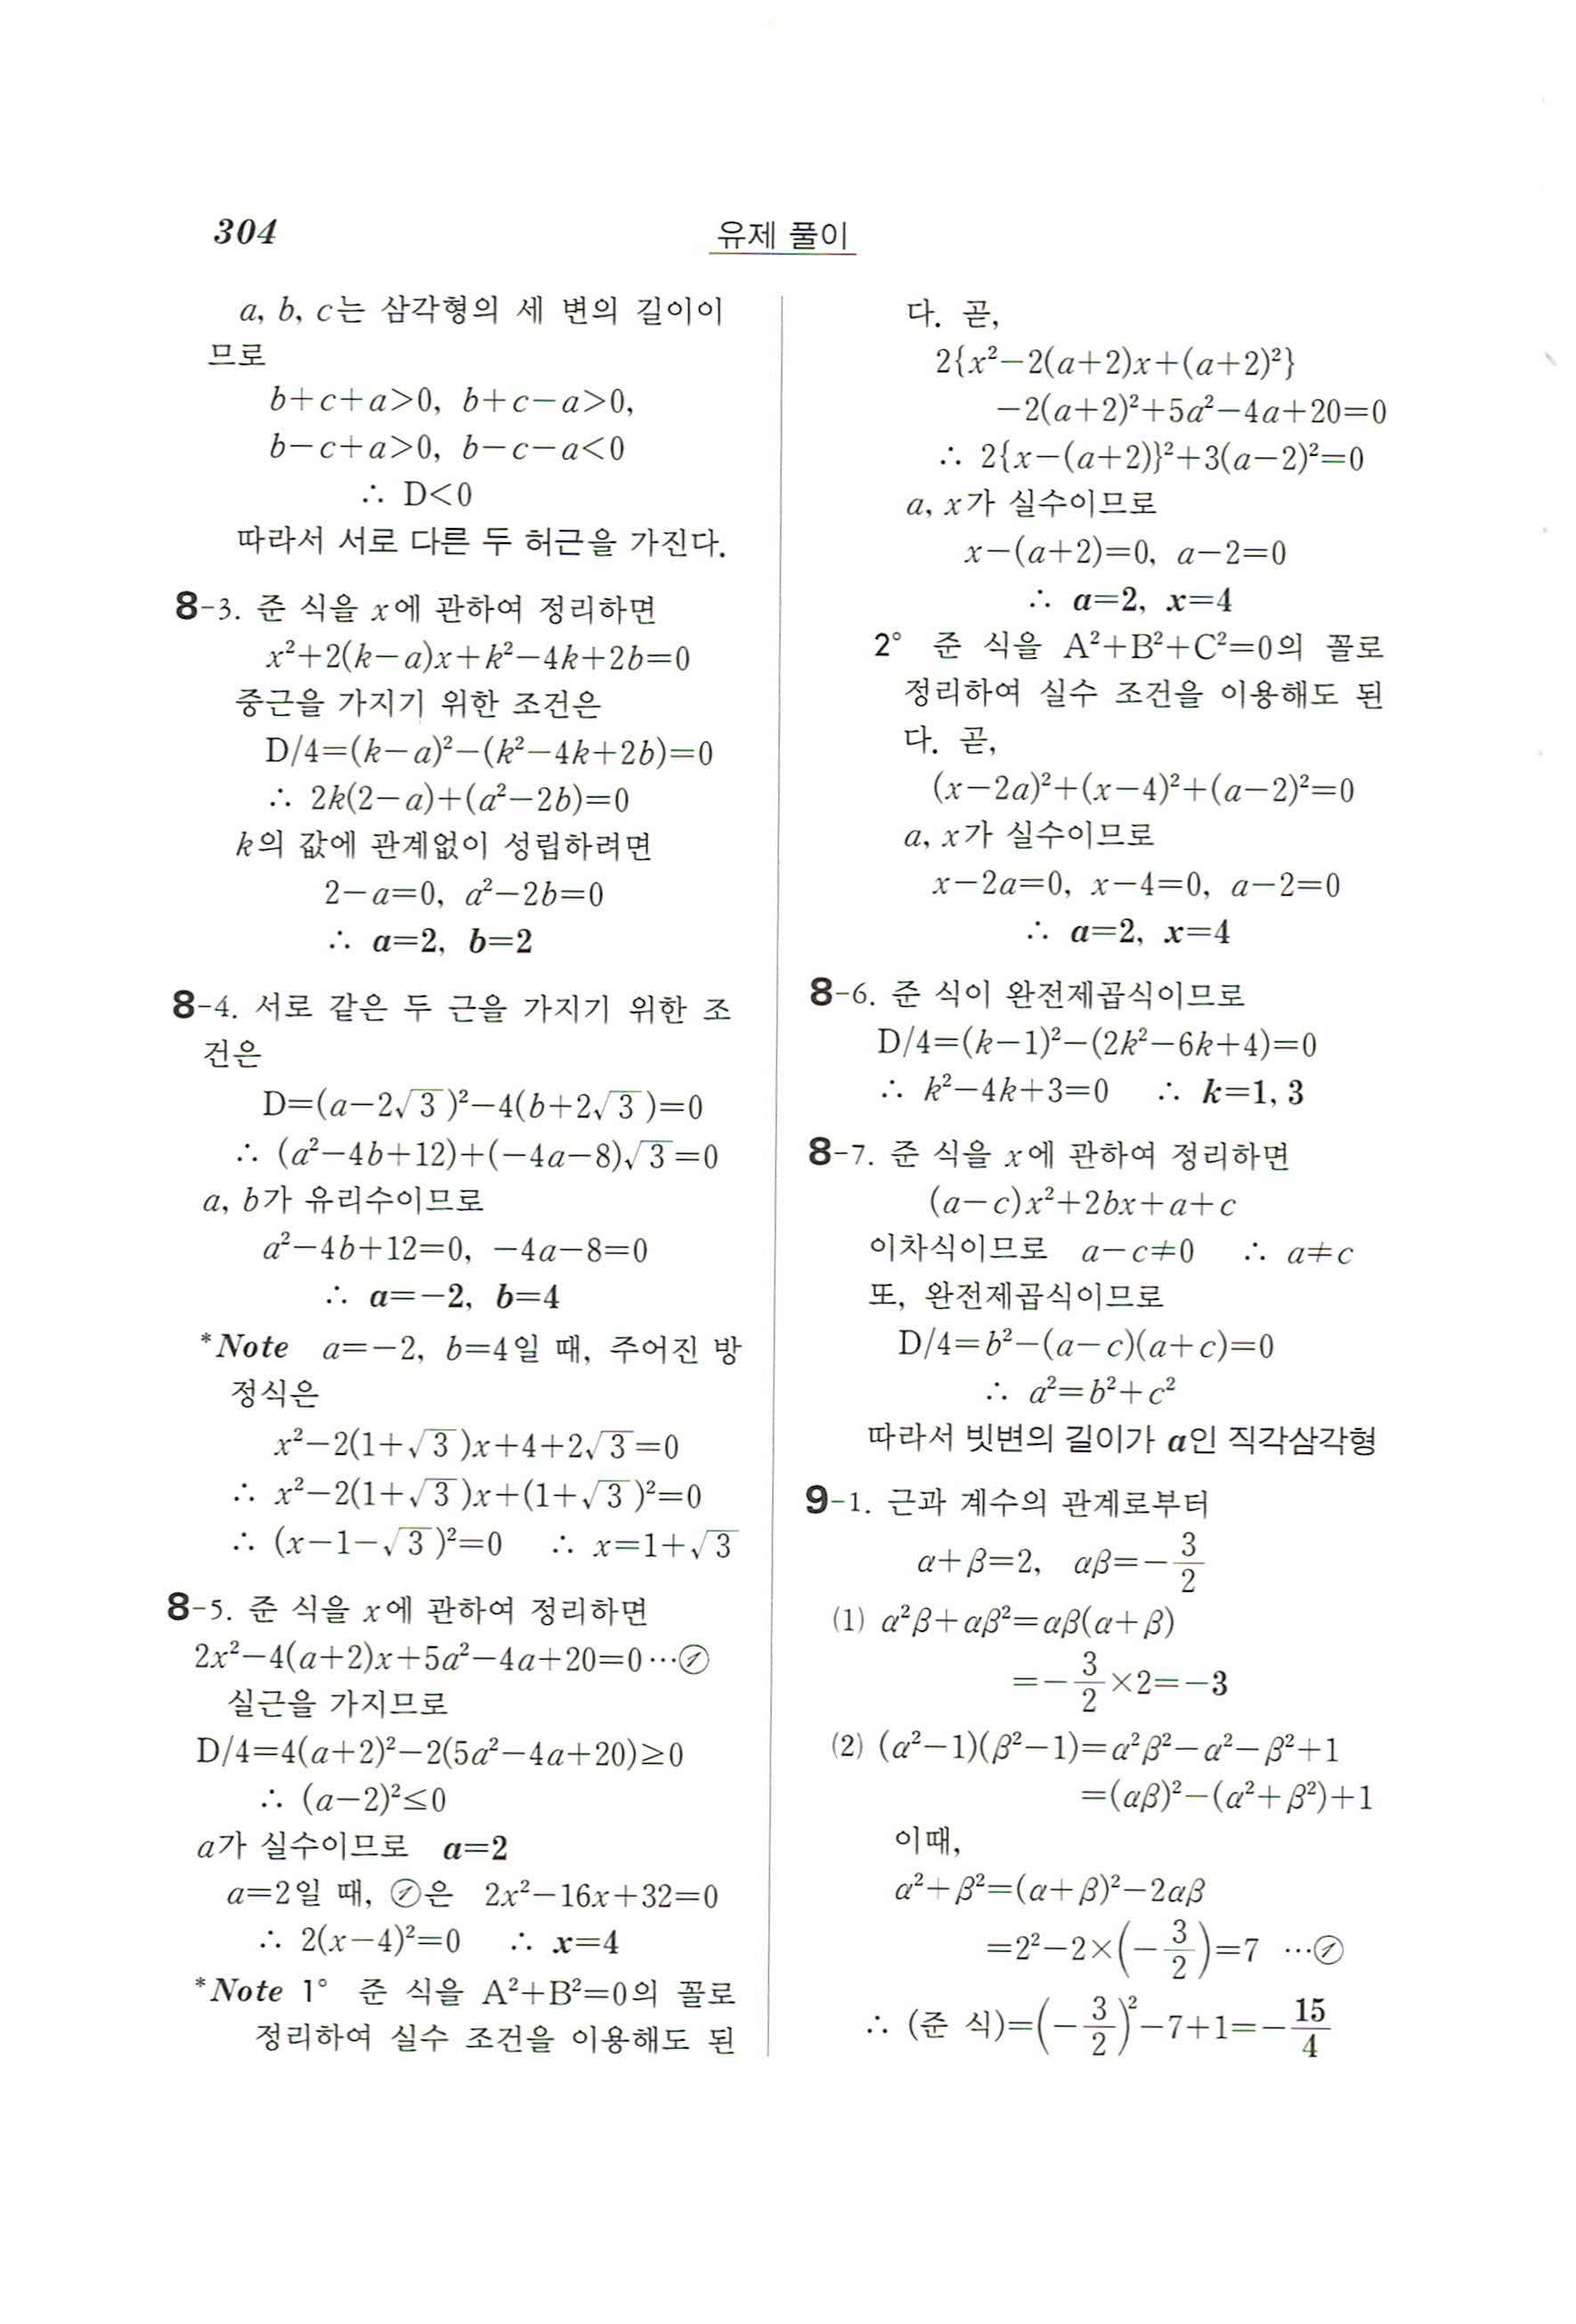 304
유제 풀이
a, b, c는 삼각형의 세 변의 길이이
므로
b+c+a>0, b+c−a>0,
b−c+a>0, b−c−a<0
∴ D<0
따라서 서로 다른 두 허근을 가진다.
8-3. 준 식을 x에 관하여 정리하면
x²+2(k−a)x+k²−4k+2b=0
중근을 가지기 위한 조건은
D/4=(k−a)²−(k²−4k+2b)=0
∴ 2k(2−a)+(a²−2b)=0
k의 값에 관계없이 성립하려면
2−a=0, a²−2b=0
∴ a=2, b=2
8-4. 서로 같은 두 근을 가지기 위한 조
건은
D=(a−2√3)²−4(b+2√3)=0
∴ (a²−4b+12)+(−4a−8)√3=0
a, b가 유리수이므로
a²−4b+12=0, −4a−8=0
∴ a=−2, b=4
*Note a=−2, b=4일 때, 주어진 방
정식은
x²−2(1+√3)x+4+2√3=0
∴ x²−2(1+√3)x+(1+√3)²=0
∴ (x−1−√3)²=0 ∴ x=1+√3
8-5. 준 식을 x에 관하여 정리하면
2x²−4(a+2)x+5a²−4a+20=0 …㉠
실근을 가지므로
D/4=4(a+2)²−2(5a²−4a+20)≥0
∴ (a−2)²≤0
a가 실수이므로 a=2
a=2일 때, ㉠은 2x²−16x+32=0
∴ 2(x−4)²=0 ∴ x=4
*Note 1° 준 식을 A²+B²=0의 꼴로
정리하여 실수 조건을 이용해도 된
다. 곧,
2{x²−2(a+2)x+(a+2)²}
−2(a+2)²+5a²−4a+20=0
∴ 2{x−(a+2)}²+3(a−2)²=0
a, x가 실수이므로
x−(a+2)=0, a−2=0
∴ a=2, x=4
2° 준 식을 A²+B²+C²=0의 꼴로
정리하여 실수 조건을 이용해도 된
다. 곧,
(x−2a)²+(x−4)²+(a−2)²=0
a, x가 실수이므로
x−2a=0, x−4=0, a−2=0
∴ a=2, x=4
8-6. 준 식이 완전제곱식이므로
D/4=(k−1)²−(2k²−6k+4)=0
∴ k²−4k+3=0 ∴ k=1, 3
8-7. 준 식을 x에 관하여 정리하면
(a−c)x²+2bx+a+c
이차식이므로 a−c≠0 ∴ a≠c
또, 완전제곱식이므로
D/4=b²−(a−c)(a+c)=0
∴ a²=b²+c²
따라서 빗변의 길이가 a인 직각삼각형
9-1. 근과 계수의 관계로부터
α+β=2, αβ=−3/2
(1) α²β+αβ²=αβ(α+β)
=−3/2×2=−3
(2) (α²−1)(β²−1)=α²β²−α²−β²+1
=(αβ)²−(α²+β²)+1
이때,
α²+β²=(α+β)²−2αβ
=2²−2×(−3/2)=7 …㉠
∴ (준 식)=(−3/2)²−7+1=−15/4